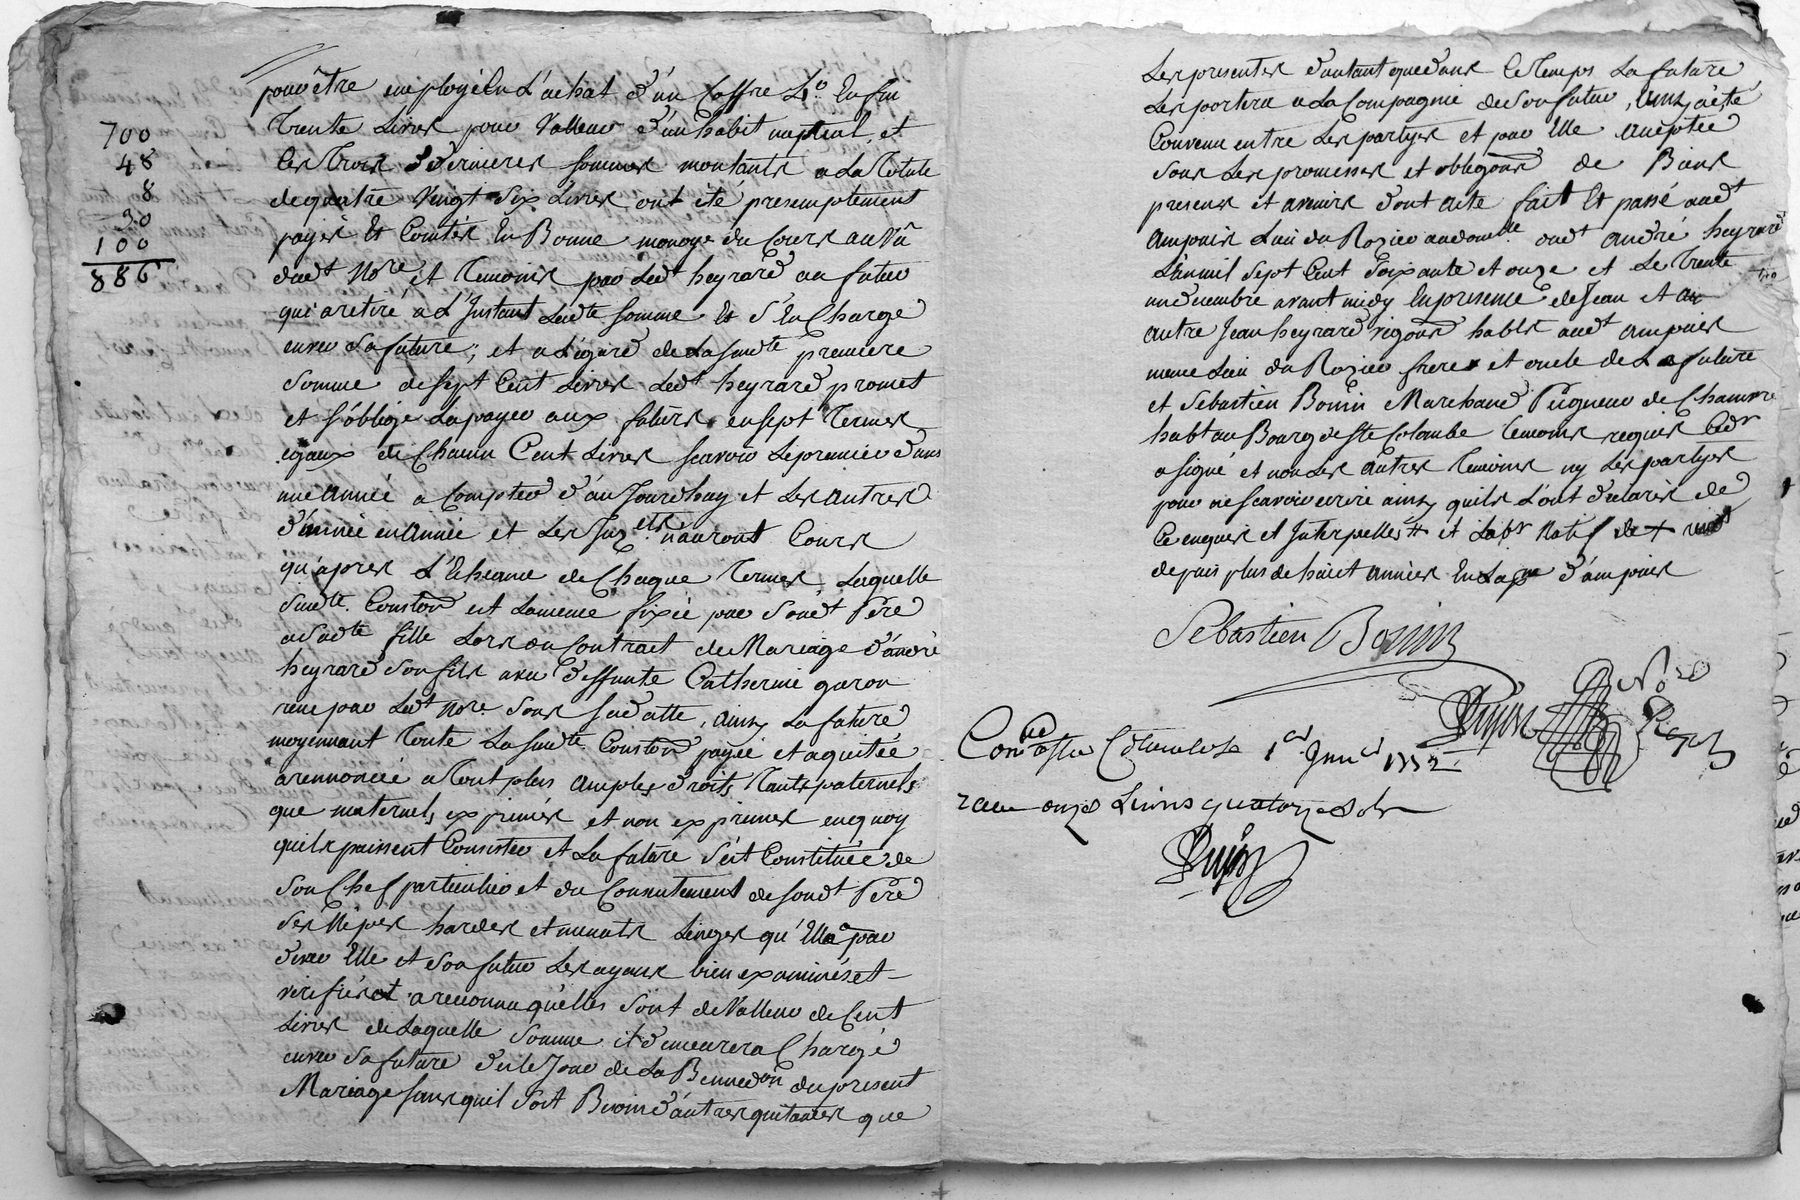 700
48
8
30
100
886
pour être employé En L'achat d'un Coffre Et Enfin
Trente Livres pour Valleur d'un habit nuptial, et
Ces Trois Dernieres sommes montants a La Totale
de quatre Vingt Six Livres ont été présemptement
payés Et Comtés En Bonne monoye du Cours au Vû
dudt Nore et Temoins par Ledt heyrard au futur
qui a retiré a L'Instant Ladte somme Et S'En Charge
envers Sa future; et a L'égard de La susdte premiere
Somme de sept Cent Livres Ledt heyrard promet
et s'oblige La payer aux futurs en sept Termes
egaux de Chacun Cent Livres scavoir Le premier dans
une année a Compter d'aujourdhuy et Les autres
d'année en année et Les Intets n'auront Cours
qu'apres L'Echeance de Chaque Terme, Laquelle
susdte Conston est La meme fixée par Sondt Pere
a Sadte fille Lors du Contract de Mariage d'andré
heyrard Son fils avec deffunte Catherine garon
reçu par Ledt Nore Sous sa datte, ainsy La future
moyennant Toute La susdte Conston payée et aquitée
a rennoncée a Tout plus amples droits Tants paternels
que maternels exprimés et non exprimés en quoy
quils puissent Consister et La future S'est Constituée de
Son Chef particulier et du Consentement de Sondt Pere
Ses Nipes hardes et menuts Linges qu'Elle a par
devers Elle et Son futur Les ayant bien examinés et
verifiés a reconnu quelles Sont de Valleur de Cent
Livres de Laquelle Somme il demeurera Chargé
envers Sa future des Le Jour de La Bennedon du present
Mariage Sans quil Soit Besoin d'autres quitances que
Les presentes d'autant que dans Le Temps La future
Les portera a La Compagnie de Son futur, ainsy a été
Convenu entre Les partyes et par Elle acceptée
Sous Les promesses et obligons de Biens
presens et avenirs dont acte fait Et passé audt
ampuis Lieu du Rozier au domlle dudt andré heyrard
L'an mil Sept Cent Soixante et onze et Le Trente
un decembre avant midy En presence de Jean et
autre Jean heyrard vigons habts audt ampuis
meme Lieu du Rozier frere et oncle de La future
et Sebastien Bonin Marchand Peigneur de Chanvre
habt au Bourg de Ste Colombe Temoins requis
a signé et non Les autres Temoins ny Les partyes
pour ne scavoir ecrire ainsy quils L'ont declarés de
Ce enquis et Interpellés et
depuis plus de huict années En La d'ampuis
Sebastien Bonin
Dujon
Conlé a Ste Colombe Le 1er Janer 1772
recu onze Livres quatorze Sols
Dujon